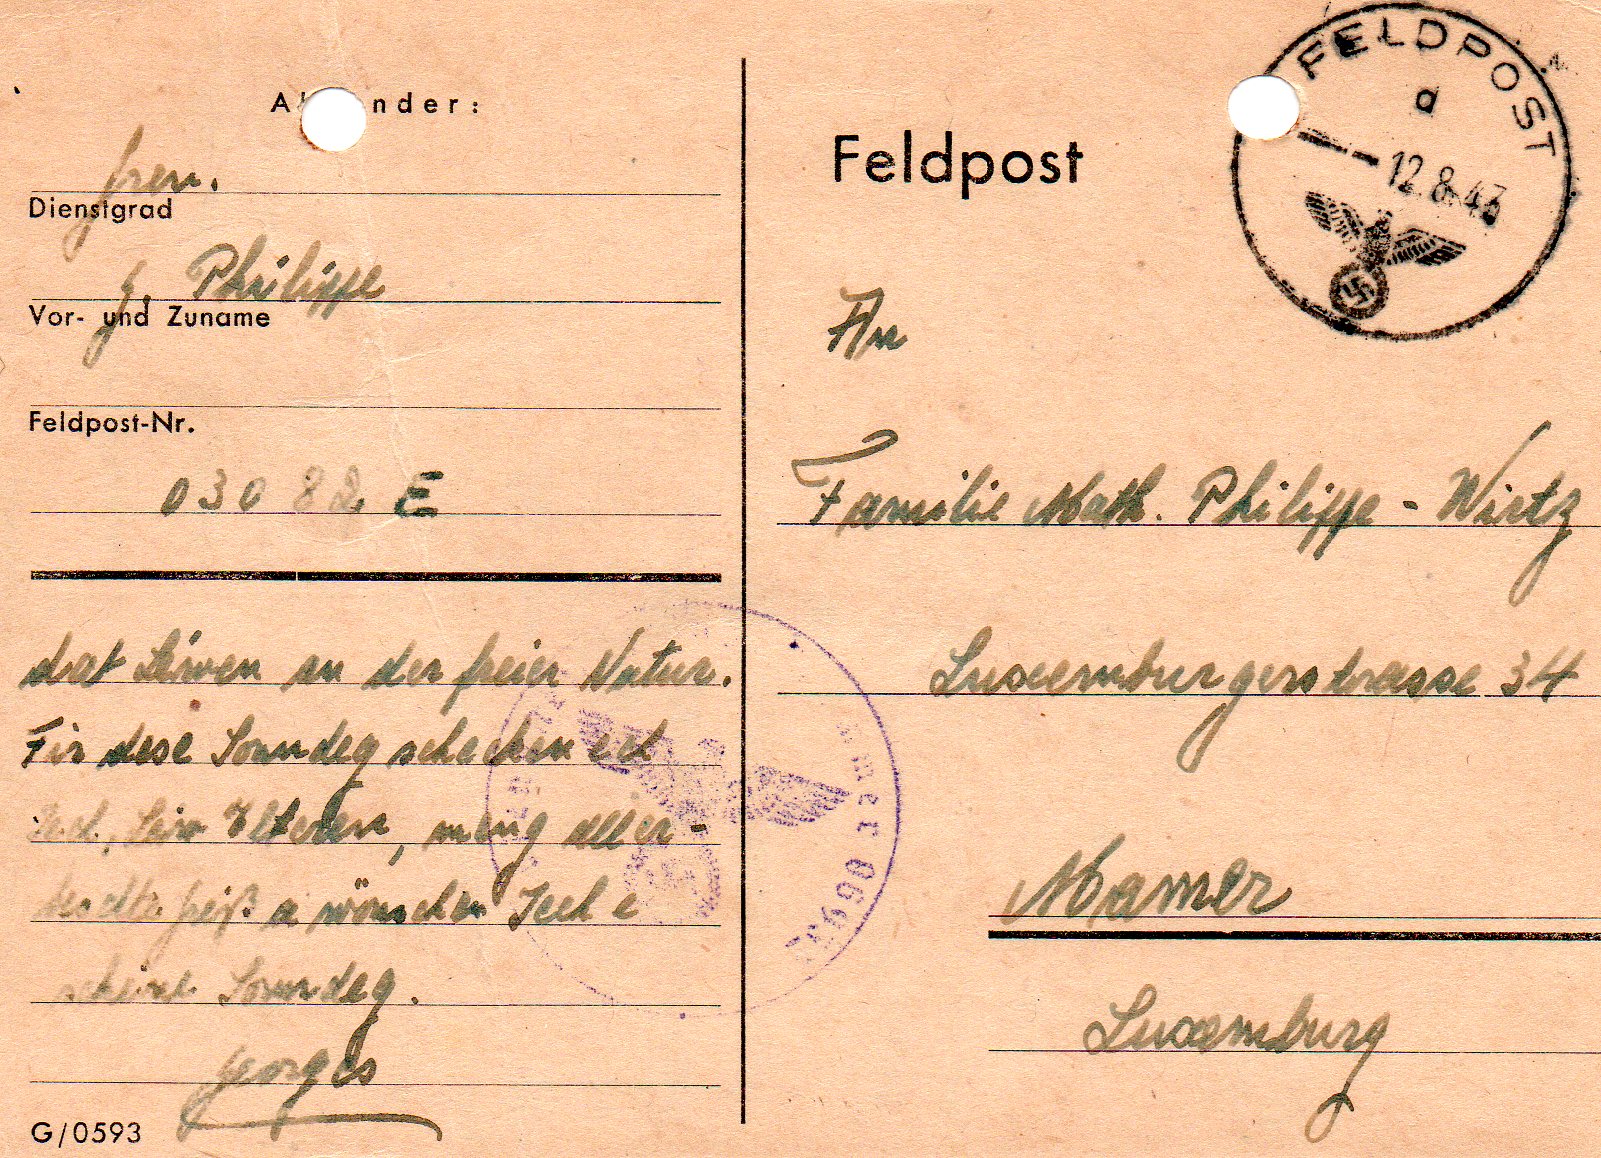 Absender:
Gren.
Dienstgrad
G. Philippe
Vor- und Zuname
Feldpost-Nr.
03082 E
dat Liewen an der freier Natur.
Fir dese Sonndeg schecken ech
Iech, Léiw Elteren, meng aller-
beschte Gréiß a wönschen Iech e
scheine Sonndeg.
Georges
G/0593
Feldpost
FELDPOST
d
12.8.43
An
Familie Math. Philippe - Wirtz
Luxemburgerstrasse 34
Mamer
Luxemburg